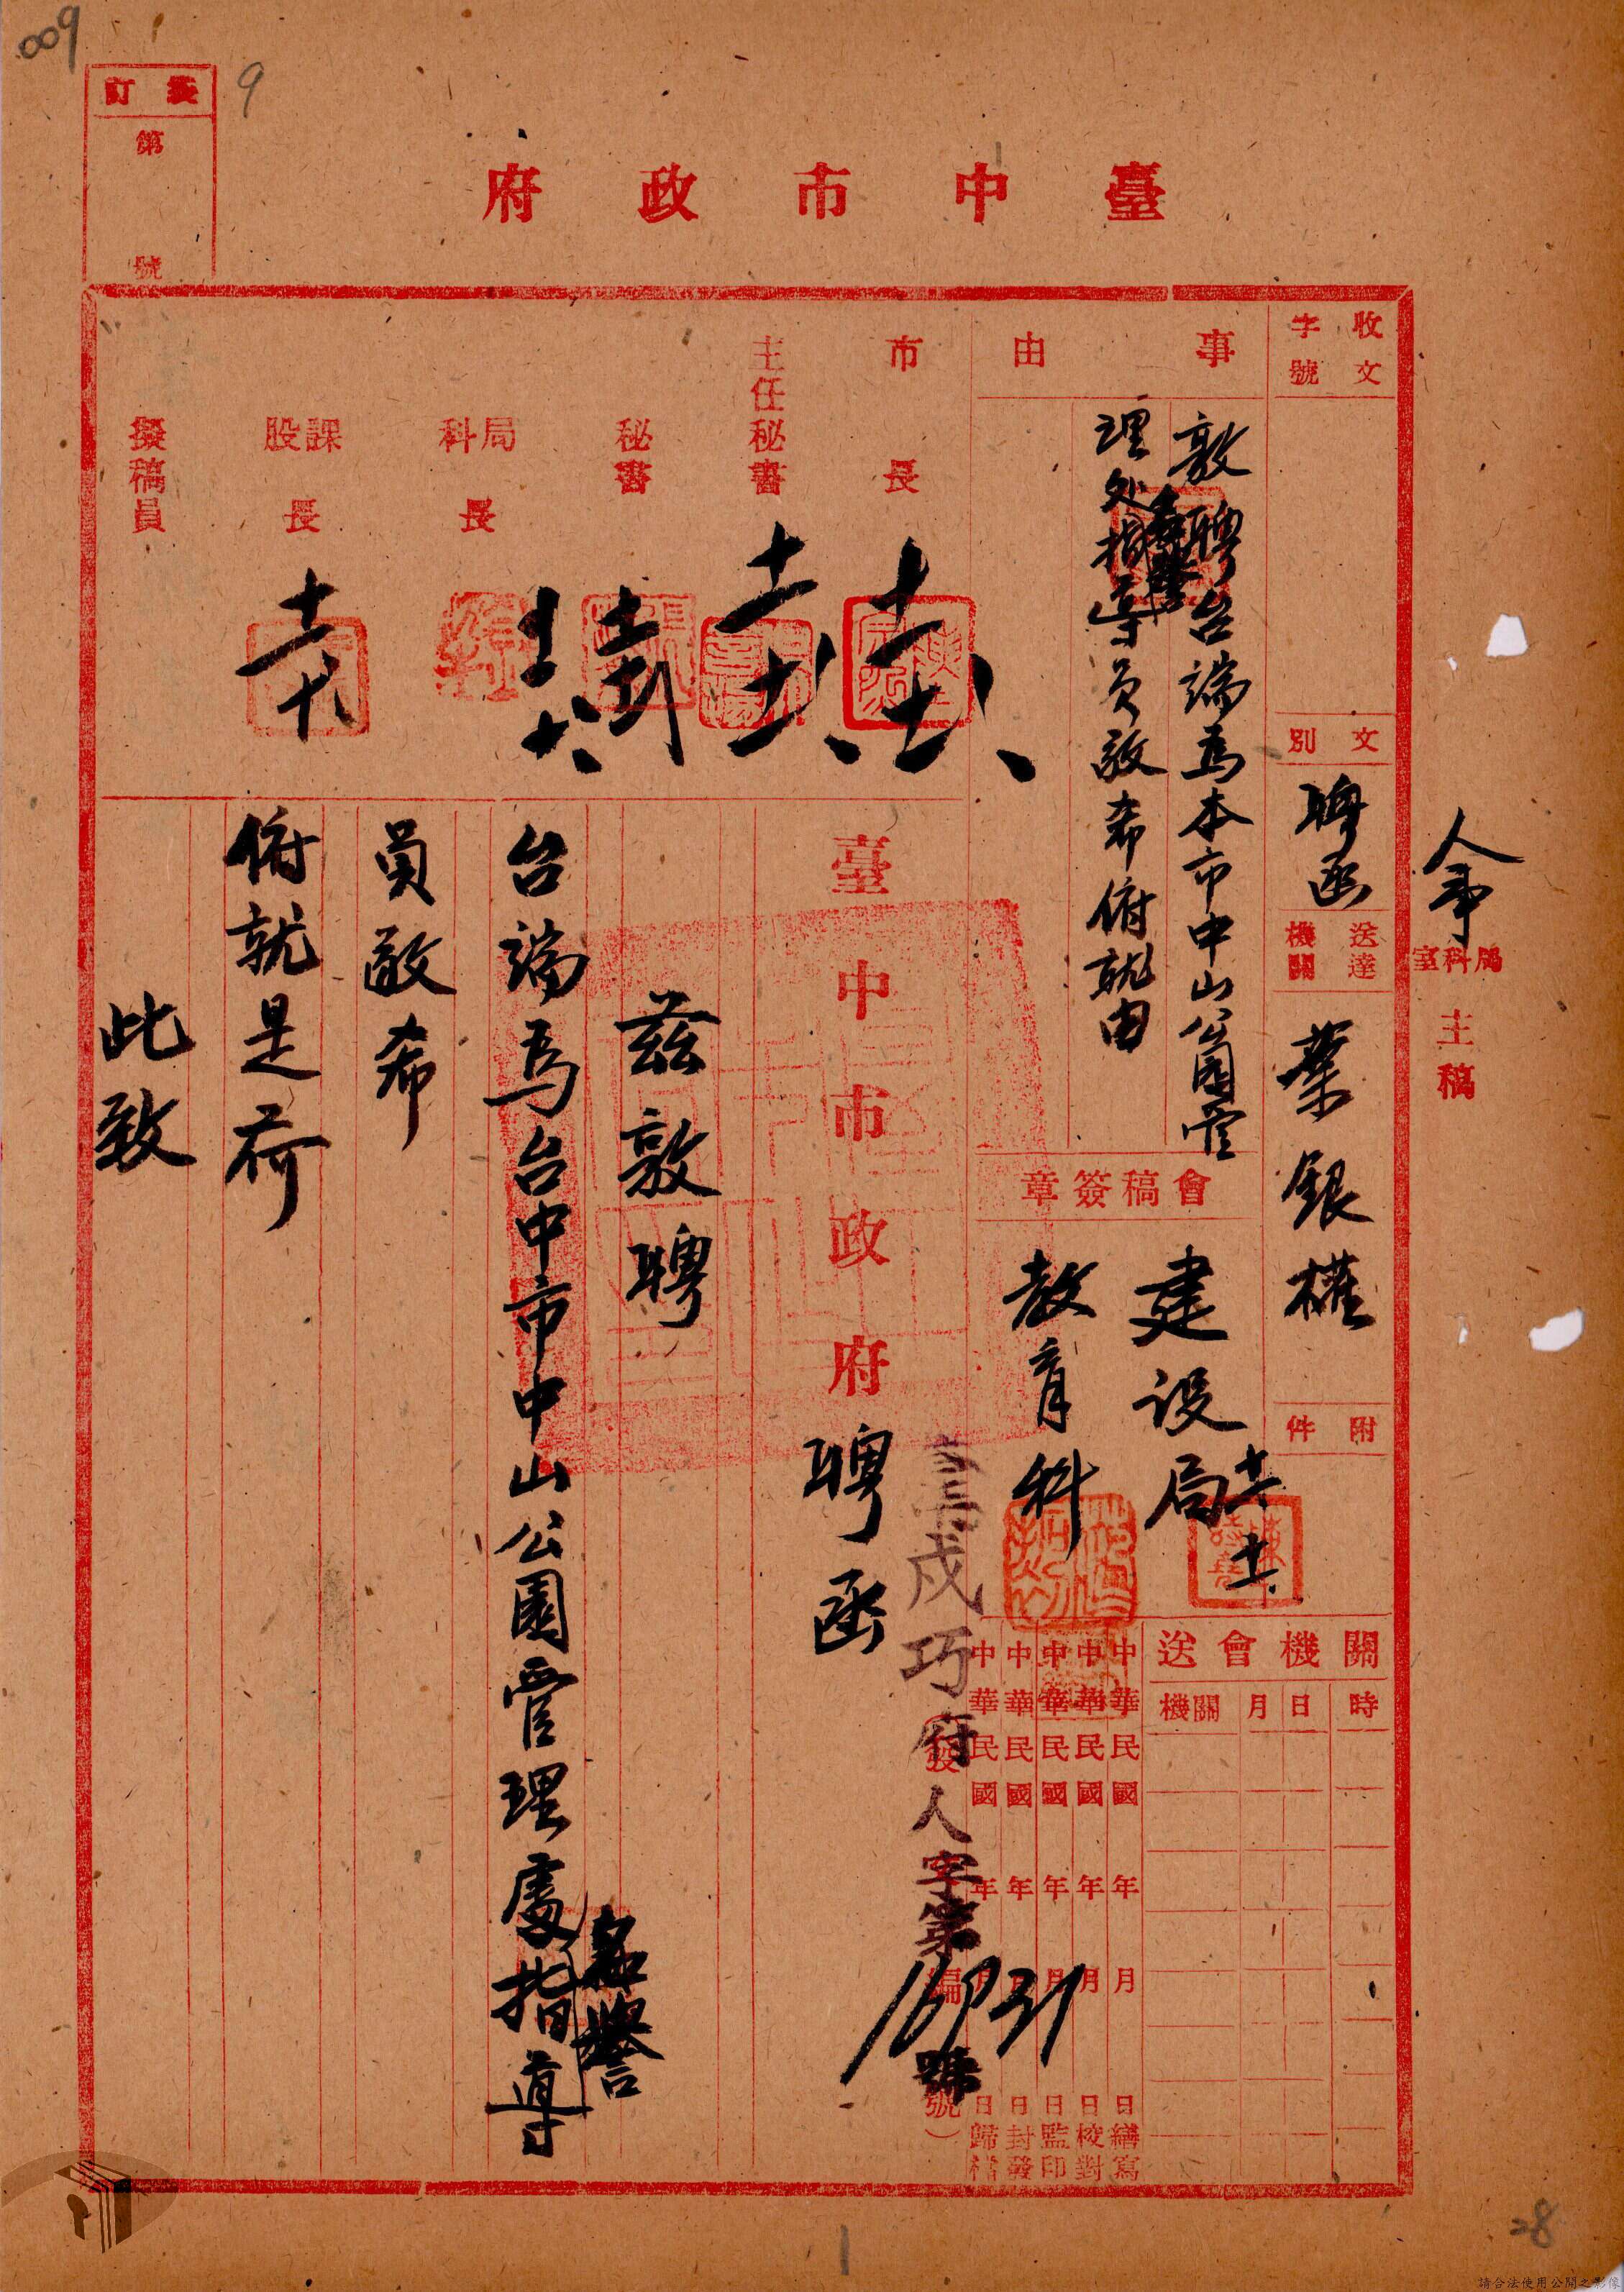 009
9
裝訂
第 號
臺中市政府
人事
局科室主稿
收文字號
文別
聘函
送達機關
葉銀權
附件
事由
敦聘台端為本市中山公園管
理处名譽指導員敬希俯就由
會稿簽章
建設局
十一
十二
教育科
關機會送
時 日 月 關機
中華民國 年 月 日繕寫
中華民國 年 月 日校對
中華民國 年 月 日監印
中華民國 年 月 日封發
中華民國 年 月 日歸檔
戍巧府人字第16931號
市長
主任秘書
秘書
局科長
課股長
擬稿員
臺中市政府聘函
茲敦聘
台端為台中市中山公園管理處名譽指導
員敬希
俯就是荷
此致
1
28
請合法使用公開之影像